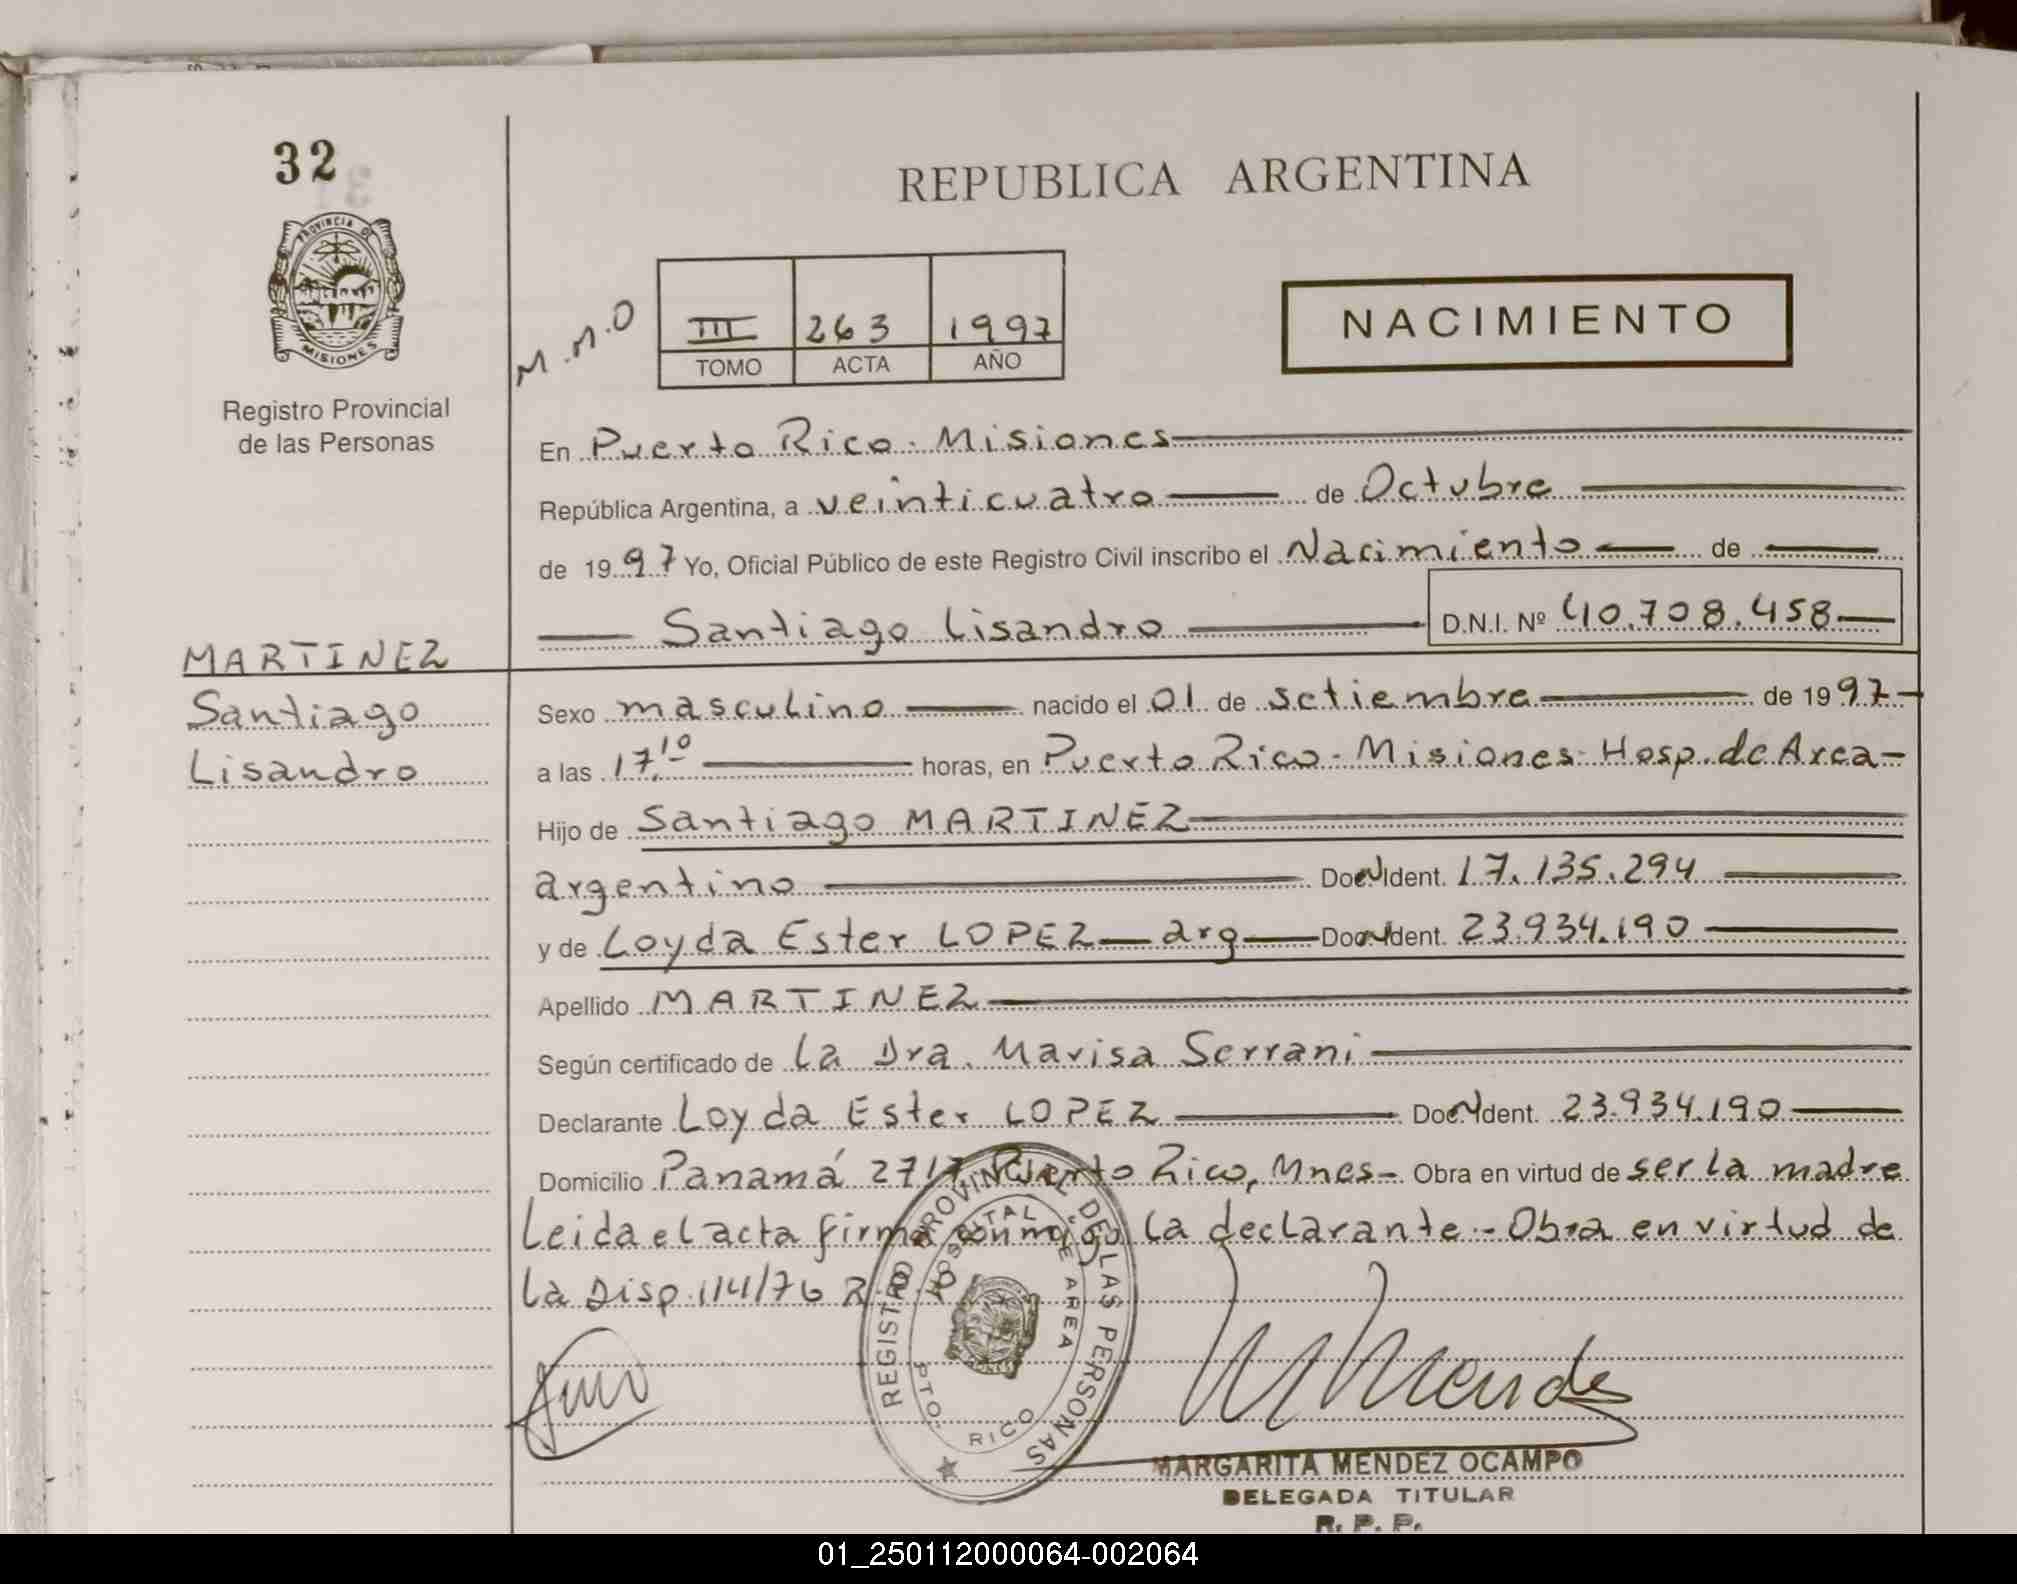 32
REPUBLICA ARGENTINA
PROVINCIA DE
MISIONES
Registro Provincial
de las Personas
M.M.O
III 263 1997
TOMO ACTA AÑO
NACIMIENTO
En Puerto Rico - Misiones
República Argentina, a veinticuatro de Octubre
de 1997 Yo, Oficial Público de este Registro Civil inscribo el Nacimiento de
Santiago Lisandro D.N.I. Nº 40.708.458
MARTINEZ
Santiago
Lisandro
Sexo masculino nacido el 01 de setiembre de 1997
a las 17,10 horas, en Puerto Rico - Misiones - Hosp. de Area
Hijo de Santiago MARTINEZ
argentino Doc. Ident. 17.135.294
y de Loyda Ester LOPEZ arg Doc. Ident. 23.934.190
Apellido MARTINEZ
Según certificado de La Dra. Marisa Serrani
Declarante Loyda Ester LOPEZ Doc. Ident. 23.934.190
Domicilio Panamá 2717 Puerto Rico, Mnes- Obra en virtud de ser la madre
Leida el acta firma conmigo la declarante - Obra en virtud de
la Disp. 114/76
REGISTRO PROVINCIAL DE LAS PERSONAS
HOSPITAL DE AREA
PTO. RICO
M Mendez
MARGARITA MENDEZ OCAMPO
DELEGADA TITULAR
R. P. P.
01_250112000064-002064